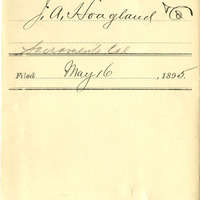 J. A. Hoagland
Sacramento Cal
Filed May 16, 1895.